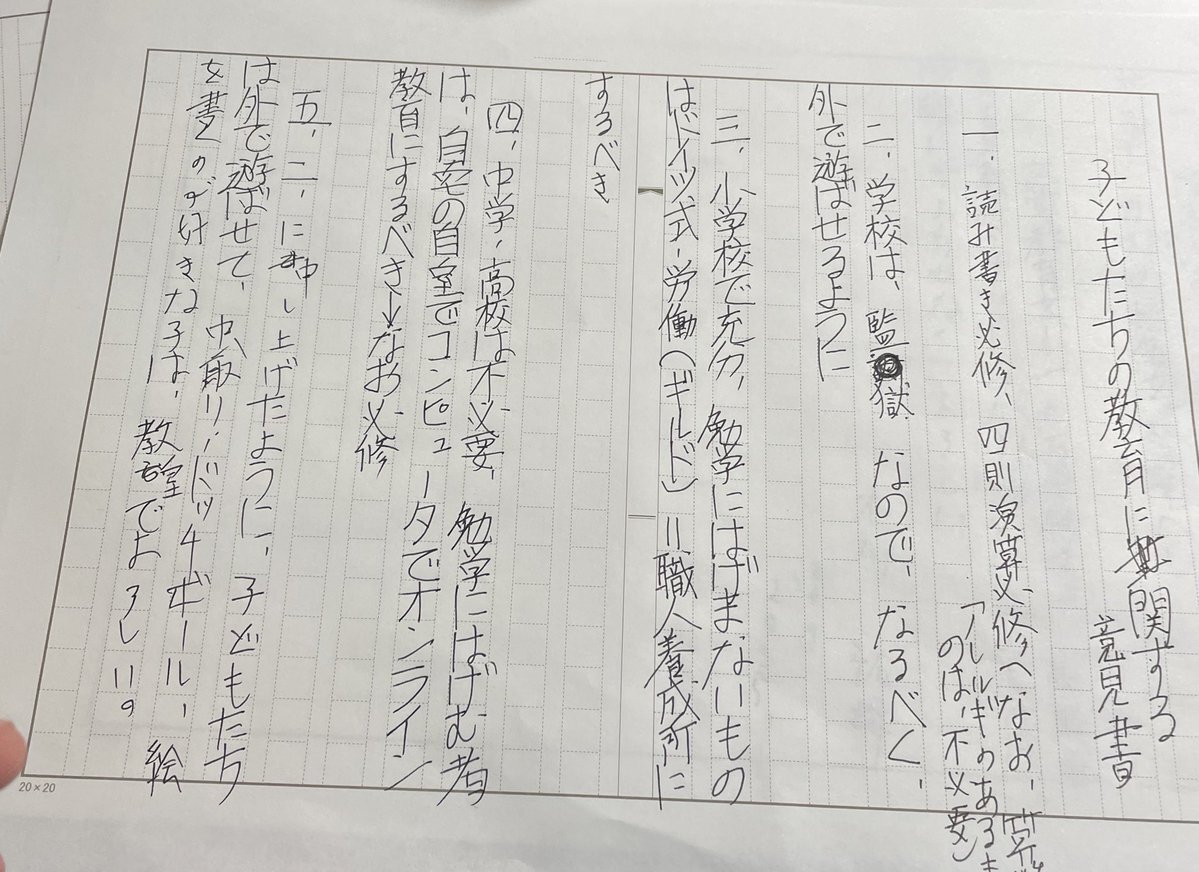 子どもたちの教育に関する
意見書
一、読み書き必修、四則演算必修へなお、算
アレルギのあるも
のは、不必要〉
二、学校は、監獄なので、なるべく、
外で遊ばせるように
三、小学校で充分、勉学にはげまないもの
はドイツ式・労働(ギルド)=職人養成所に
するべき
四、中学・高校は不必要、勉学にはげむ者
は、自宅の自室でコンピュータでオンライン
教育にするべき→なお、必修
五、二、に申し上げたように、子どもたち
は外で遊ばせて、虫取り・ドッチボール、絵
を書くのが好きな子は、教室でよろしい。
20×20